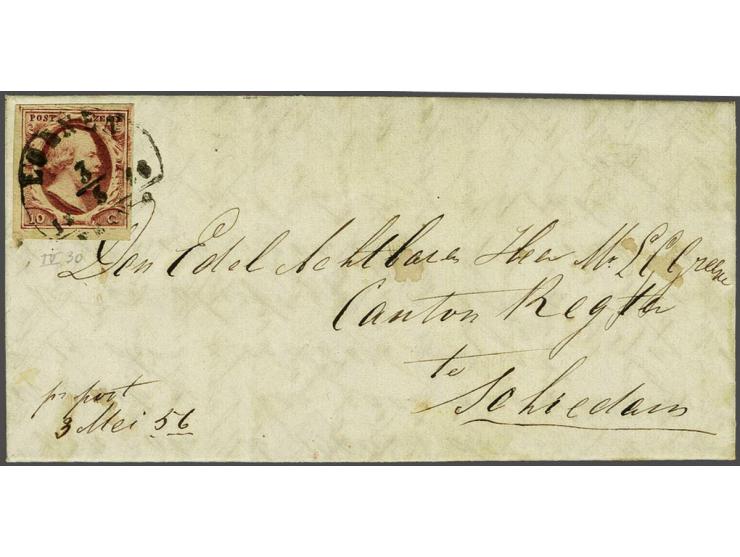 POST ZE
10 C
IV 30
Den Edel Achtbaren Heer Mr.
Canton Regter
te
Schiedam
pr post
3 Mei 56